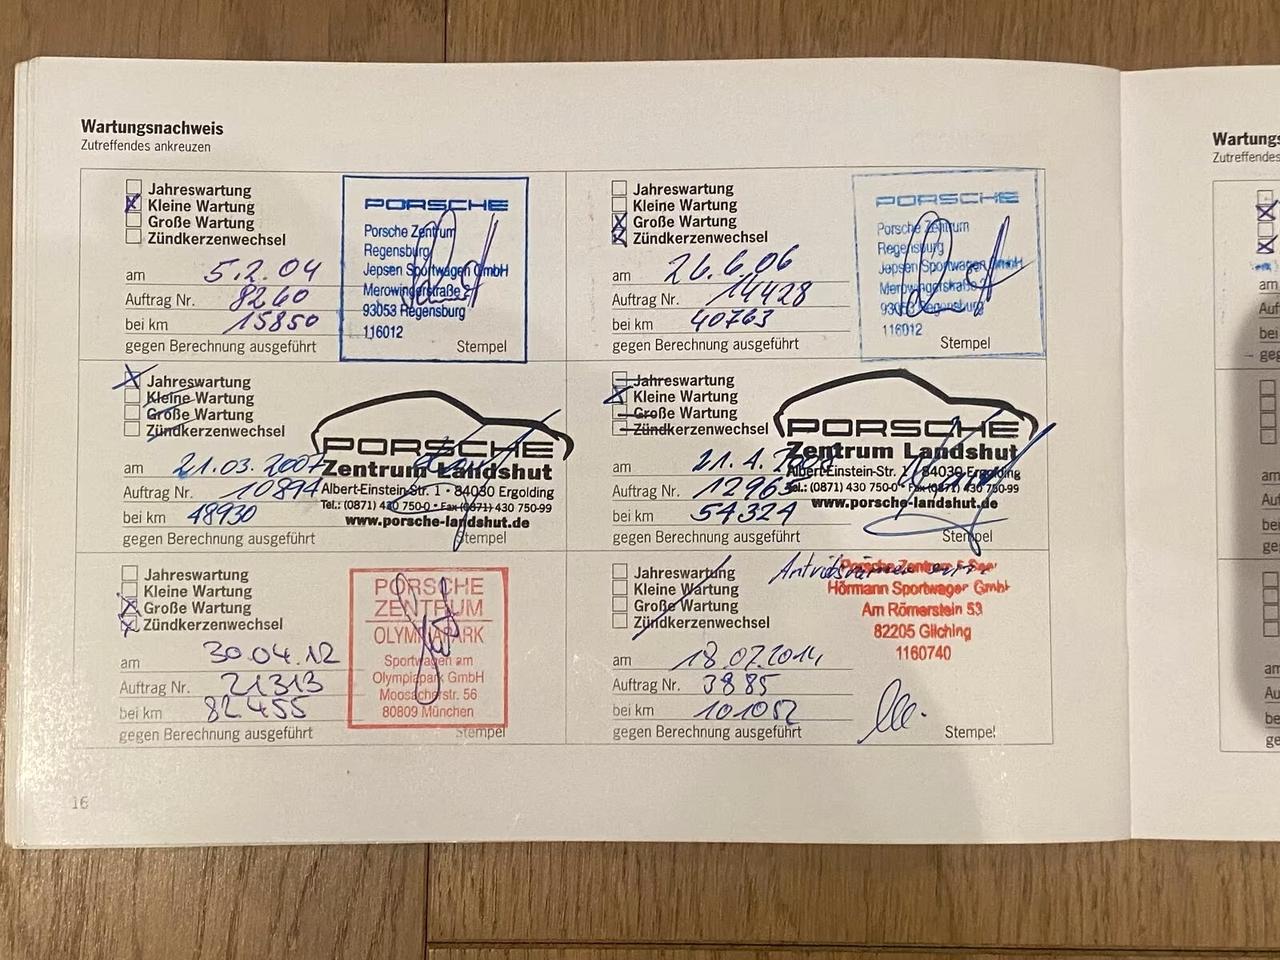 Wartungsnachweis
Zutreffendes ankreuzen
Jahreswartung
Kleine Wartung
Große Wartung
Zündkerzenwechsel
am 5.2.04
Auftrag Nr. 8260
bei km 15850
gegen Berechnung ausgeführt
PORSCHE
Porsche Zentrum
Regensburg
Jepsen Sportwagen GmbH
Merowingerstraße 2
93053 Regensburg
116012
Stempel
Jahreswartung
Kleine Wartung
Große Wartung
Zündkerzenwechsel
am 26.6.06
Auftrag Nr. 14428
bei km 40763
gegen Berechnung ausgeführt
PORSCHE
Porsche Zentrum
Regensburg
Jepsen Sportwagen GmbH
Merowingerstraße 2
93053 Regensburg
116012
Stempel
Jahreswartung
Kleine Wartung
Große Wartung
Zündkerzenwechsel
am 21.03.2007
Auftrag Nr. 10894
bei km 48930
gegen Berechnung ausgeführt
PORSCHE
Zentrum Landshut
Albert-Einstein-Str. 1 • 84030 Ergolding
Tel.: (0871) 430 750-0 • Fax (0871) 430 750-99
www.porsche-landshut.de
Stempel
Jahreswartung
Kleine Wartung
Große Wartung
Zündkerzenwechsel
am 21.4.
Auftrag Nr. 12965
bei km 54324
gegen Berechnung ausgeführt
PORSCHE
Zentrum Landshut
Albert-Einstein-Str. 1 • 84030 Ergolding
Tel.: (0871) 430 750-0 • Fax (0871) 430 750-99
www.porsche-landshut.de
Stempel
Jahreswartung
Kleine Wartung
Große Wartung
Zündkerzenwechsel
am 30.04.12
Auftrag Nr. 21313
bei km 82455
gegen Berechnung ausgeführt
PORSCHE
ZENTRUM
OLYMPIAPARK
Sportwagen am
Olympiapark GmbH
Moosacherstr. 56
80809 München
Stempel
Jahreswartung
Kleine Wartung
Große Wartung
Zündkerzenwechsel
am 18.07.2014
Auftrag Nr. 3885
bei km 101052
gegen Berechnung ausgeführt
Porsche Zentrum
Hörmann Sportwagen GmbH
Am Römerstein 53
82205 Gilching
1160740
Stempel
16
Wartungs
Zutreffendes
am
Auf
bei
geg
am
Auf
bei
ge
am
Au
be
ge